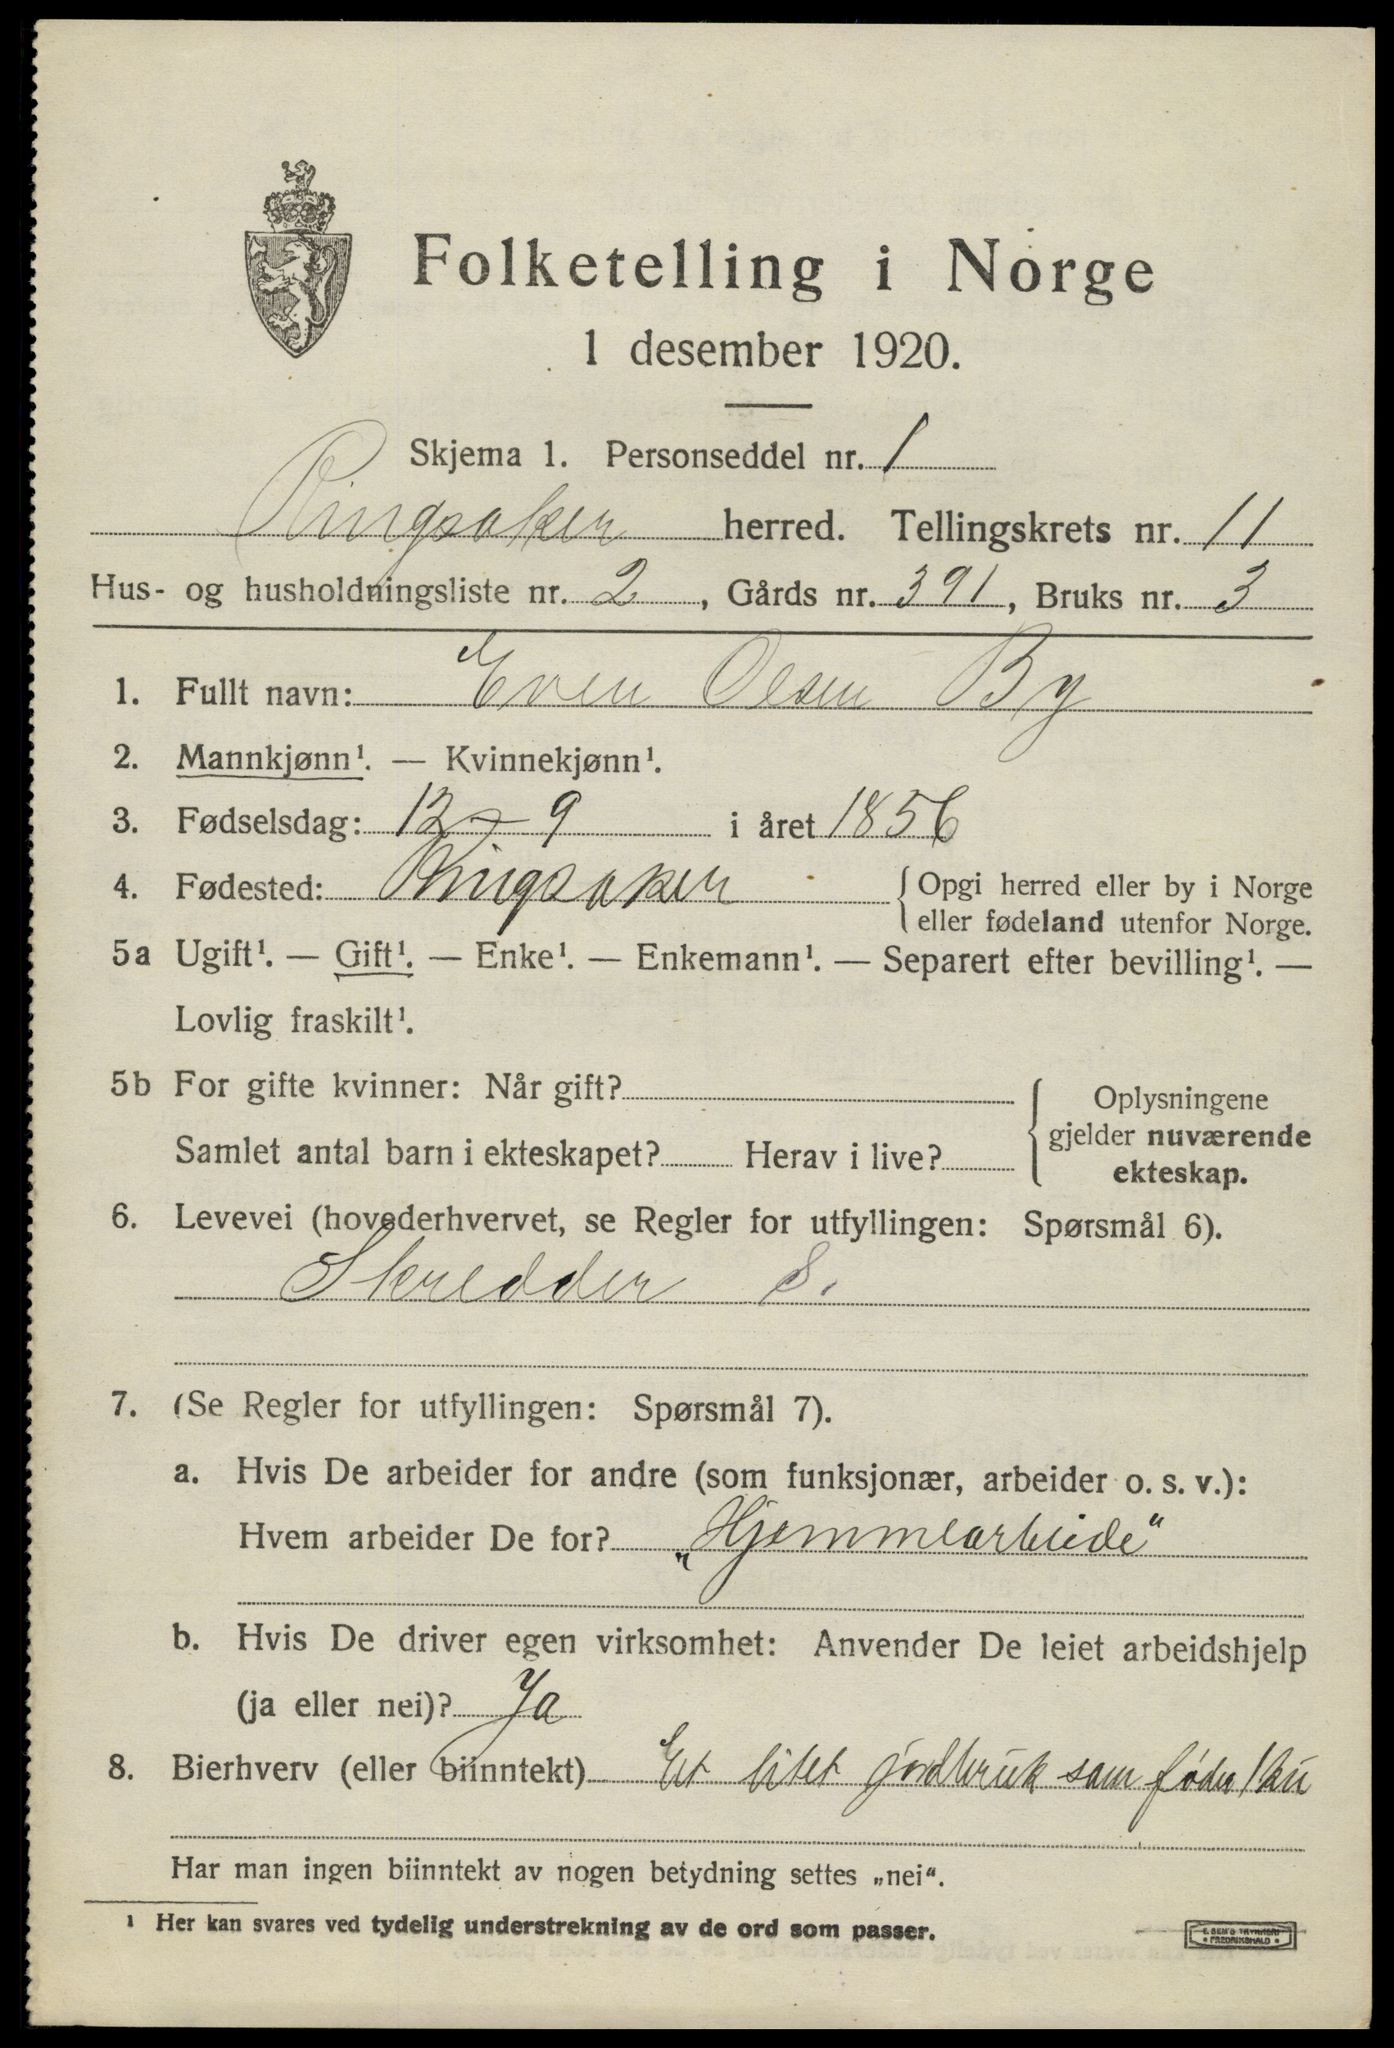 Folketelling i Norge
1 desember 1920.
Skjema 1. Personseddel nr. 1
Ringsaker herred. Tellingskrets nr. 11
Hus- og husholdningsliste nr. 2, Gårds nr. 391, Bruks nr. 3
1. Fullt navn: Even Olsen By
2. Mannkjønn¹. — Kvinnekjønn¹.
3. Fødselsdag: 12 - 9 i året 1856
4. Fødested: Ringsaker { Opgi herred eller by i Norge
eller fødeland utenfor Norge.
5a Ugift¹. — Gift¹. — Enke¹. — Enkemann¹. — Separert efter bevilling¹. —
Lovlig fraskilt¹.
5b For gifte kvinner: Når gift?
Samlet antal barn i ekteskapet? Herav i live?
Oplysningene
gjelder nuværende
ekteskap.
6. Levevei (hovederhvervet, se Regler for utfyllingen: Spørsmål 6).
Skredder S.
7. (Se Regler for utfyllingen: Spørsmål 7).
a. Hvis De arbeider for andre (som funksjonær, arbeider o. s. v.):
Hvem arbeider De for? „Hjemmearbeide“
b. Hvis De driver egen virksomhet: Anvender De leiet arbeidshjelp
(ja eller nei)? Ja
8. Bierhverv (eller biinntekt) Et litet jordbruk som føder 1 ku
Har man ingen biinntekt av nogen betydning settes „nei“.
¹ Her kan svares ved tydelig understrekning av de ord som passer.
FREDRIKSHALD